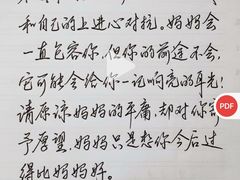 和自己的上进心对抗。妈妈会
一直包容你,但你的前途不会,
它可能会给你一记响亮的耳光!
请原谅妈妈的平庸,却对你寄
予厚望,妈妈只是想你今后过
得比妈妈好。
PDF